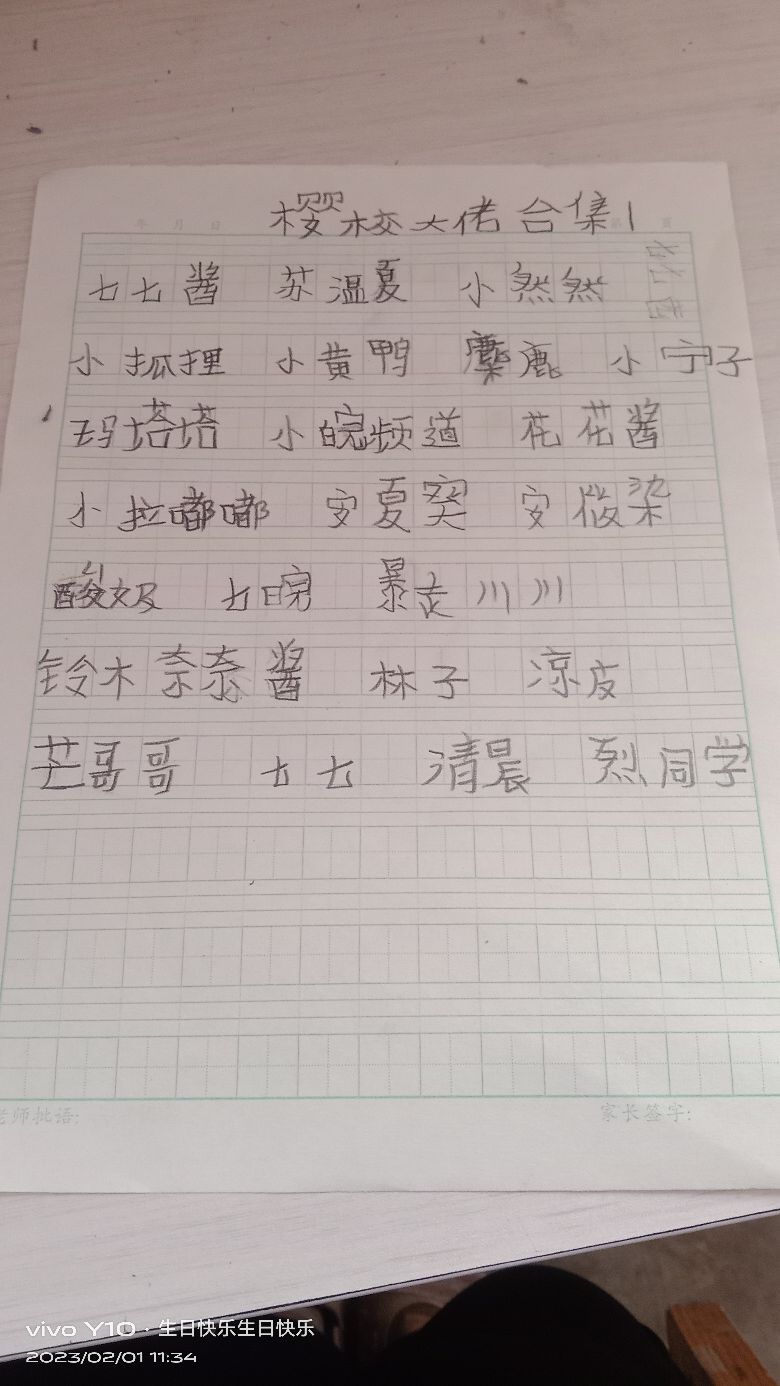 年 月 日 第 页
樱校大佬合集1
七七酱 苏温夏 小然然
小狐狸 小黄鸭 麋鹿 小宁子
玛塔塔 小皖频道 花花酱
小拉嘟嘟 安夏突 安筱染
酸奶 七晥 暴走川川
铃木奈奈酱 林子 凉皮
芒哥哥 七七 清晨 烈同学
老师批语: 家长签字:
vivo Y10 · 生日快乐生日快乐
2023/02/01 11:34